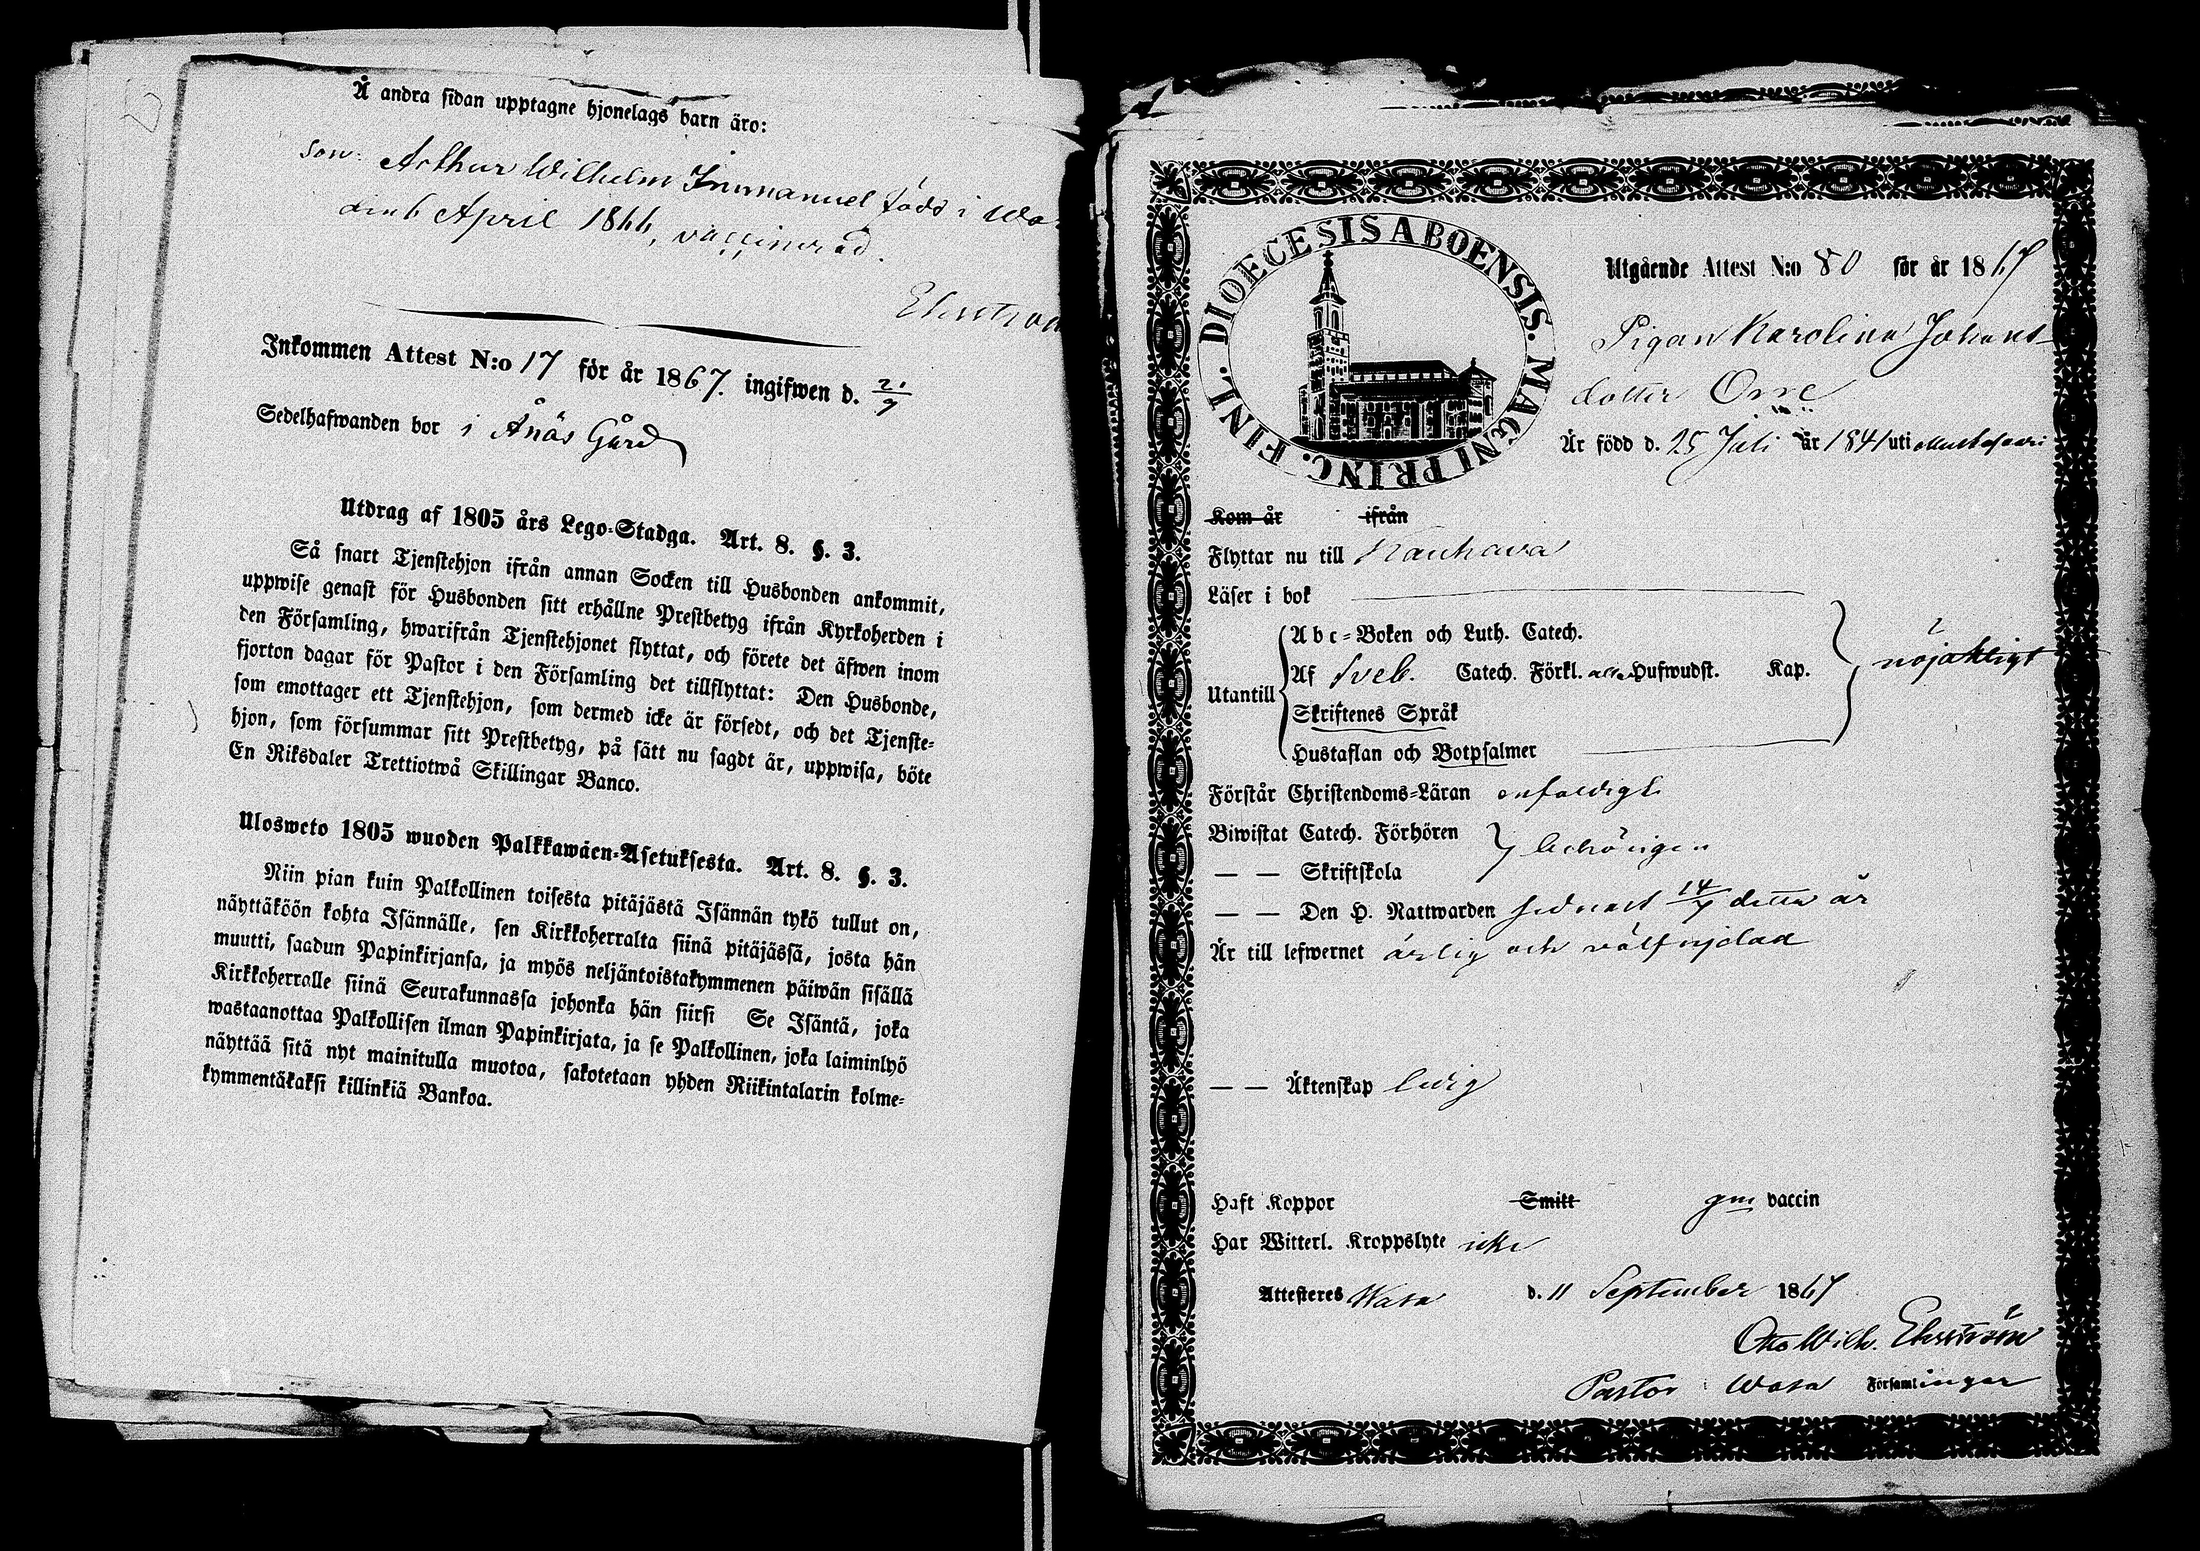 Å andra sidan upptagne hjonelags barn äro:
son: Arthur Wilhelm Immanuel född i Wa
den 6 April 1866, vaccinerad.
Inkommen Attest N:o 17 för år 1867. ingifwen d. 21/9
Sedelhafwanden bor i Ånäs Gård
Utdrag af 1805 års Lego-Stadga. Art. 8. §. 3.
Så snart Tjenstehjon ifrån annan Socken till Husbonden ankommit,
uppwise genast för Husbonden sitt erhållne Prestbetyg ifrån Kyrkoherden i
den Församling, hwarifrån Tjenstehjonet flyttat, och förete det äfwen inom
fjorton dagar för Pastor i den Församling det tillflyttat: Den Husbonde,
som emottager ett Tjenstehjon, som dermed icke är försedt, och det Tjenste-
hjon, som försummar sitt Prestbetyg, på sätt nu sagdt är, uppwisa, böte
En Riksdaler Trettiotwå Skillingar Banco.
Ulosweto 1805 wuoden Palkkawäen-Asetuksesta. Art. 8. §. 3.
Niin pian kuin Palkollinen toisesta pitäjästä Isännän tykö tullut on,
näyttäköön kohta Isännälle, sen Kirkkoherralta siinä pitäjässä, josta hän
muutti, saadun Papinkirjansa, ja myös neljäntoistakymmenen päiwän sisällä
Kirkkoherralle siinä Seurakunnassa johonka hän siirsi Se Isäntä, joka
wastaanottaa Palkollisen ilman Papinkirjata, ja se Palkollinen, joka laiminlyö
näyttää sitä nyt mainitulla muotoa, sakotetaan yhden Riikintalarin kolme-
kymmentäkaksi killinkiä Bankoa.
DIOECESIS ABOENSIS. MAGNI PRINC. FINL.
Utgående Attest N:o 80 för år 1867
Pigan Karolina Johans-
dotter Orre
Är född d. 25 Juli år 1841 uti Mustasaari
Kom år ifrån
Flyttar nu till Kauhava
Läser i bok
Abc-Boken och Luth. Catech.
Utantill Af Sveb. Catech. Förkl. alla Hufwudst. Kap. nöjaktigt
Skriftenes Språk
Hustaflan och Botpsalmer
Förstår Christendoms-Läran enfaldigt
Biwistat Catech. Förhören behörigen
— — Skriftskola
— — Den H. Nattwarden sednast 14/7 detta år
Är till lefwernet ärlig och välfrejdad
— — Äktenskap ledig
Haft Koppor Smitt gm vaccin
Har Witterl. Kroppslyte icke
Attesteres Wasa d. 11 September 1867
Otto Wilh. Ekström
Pastor i Wasa Församlingar